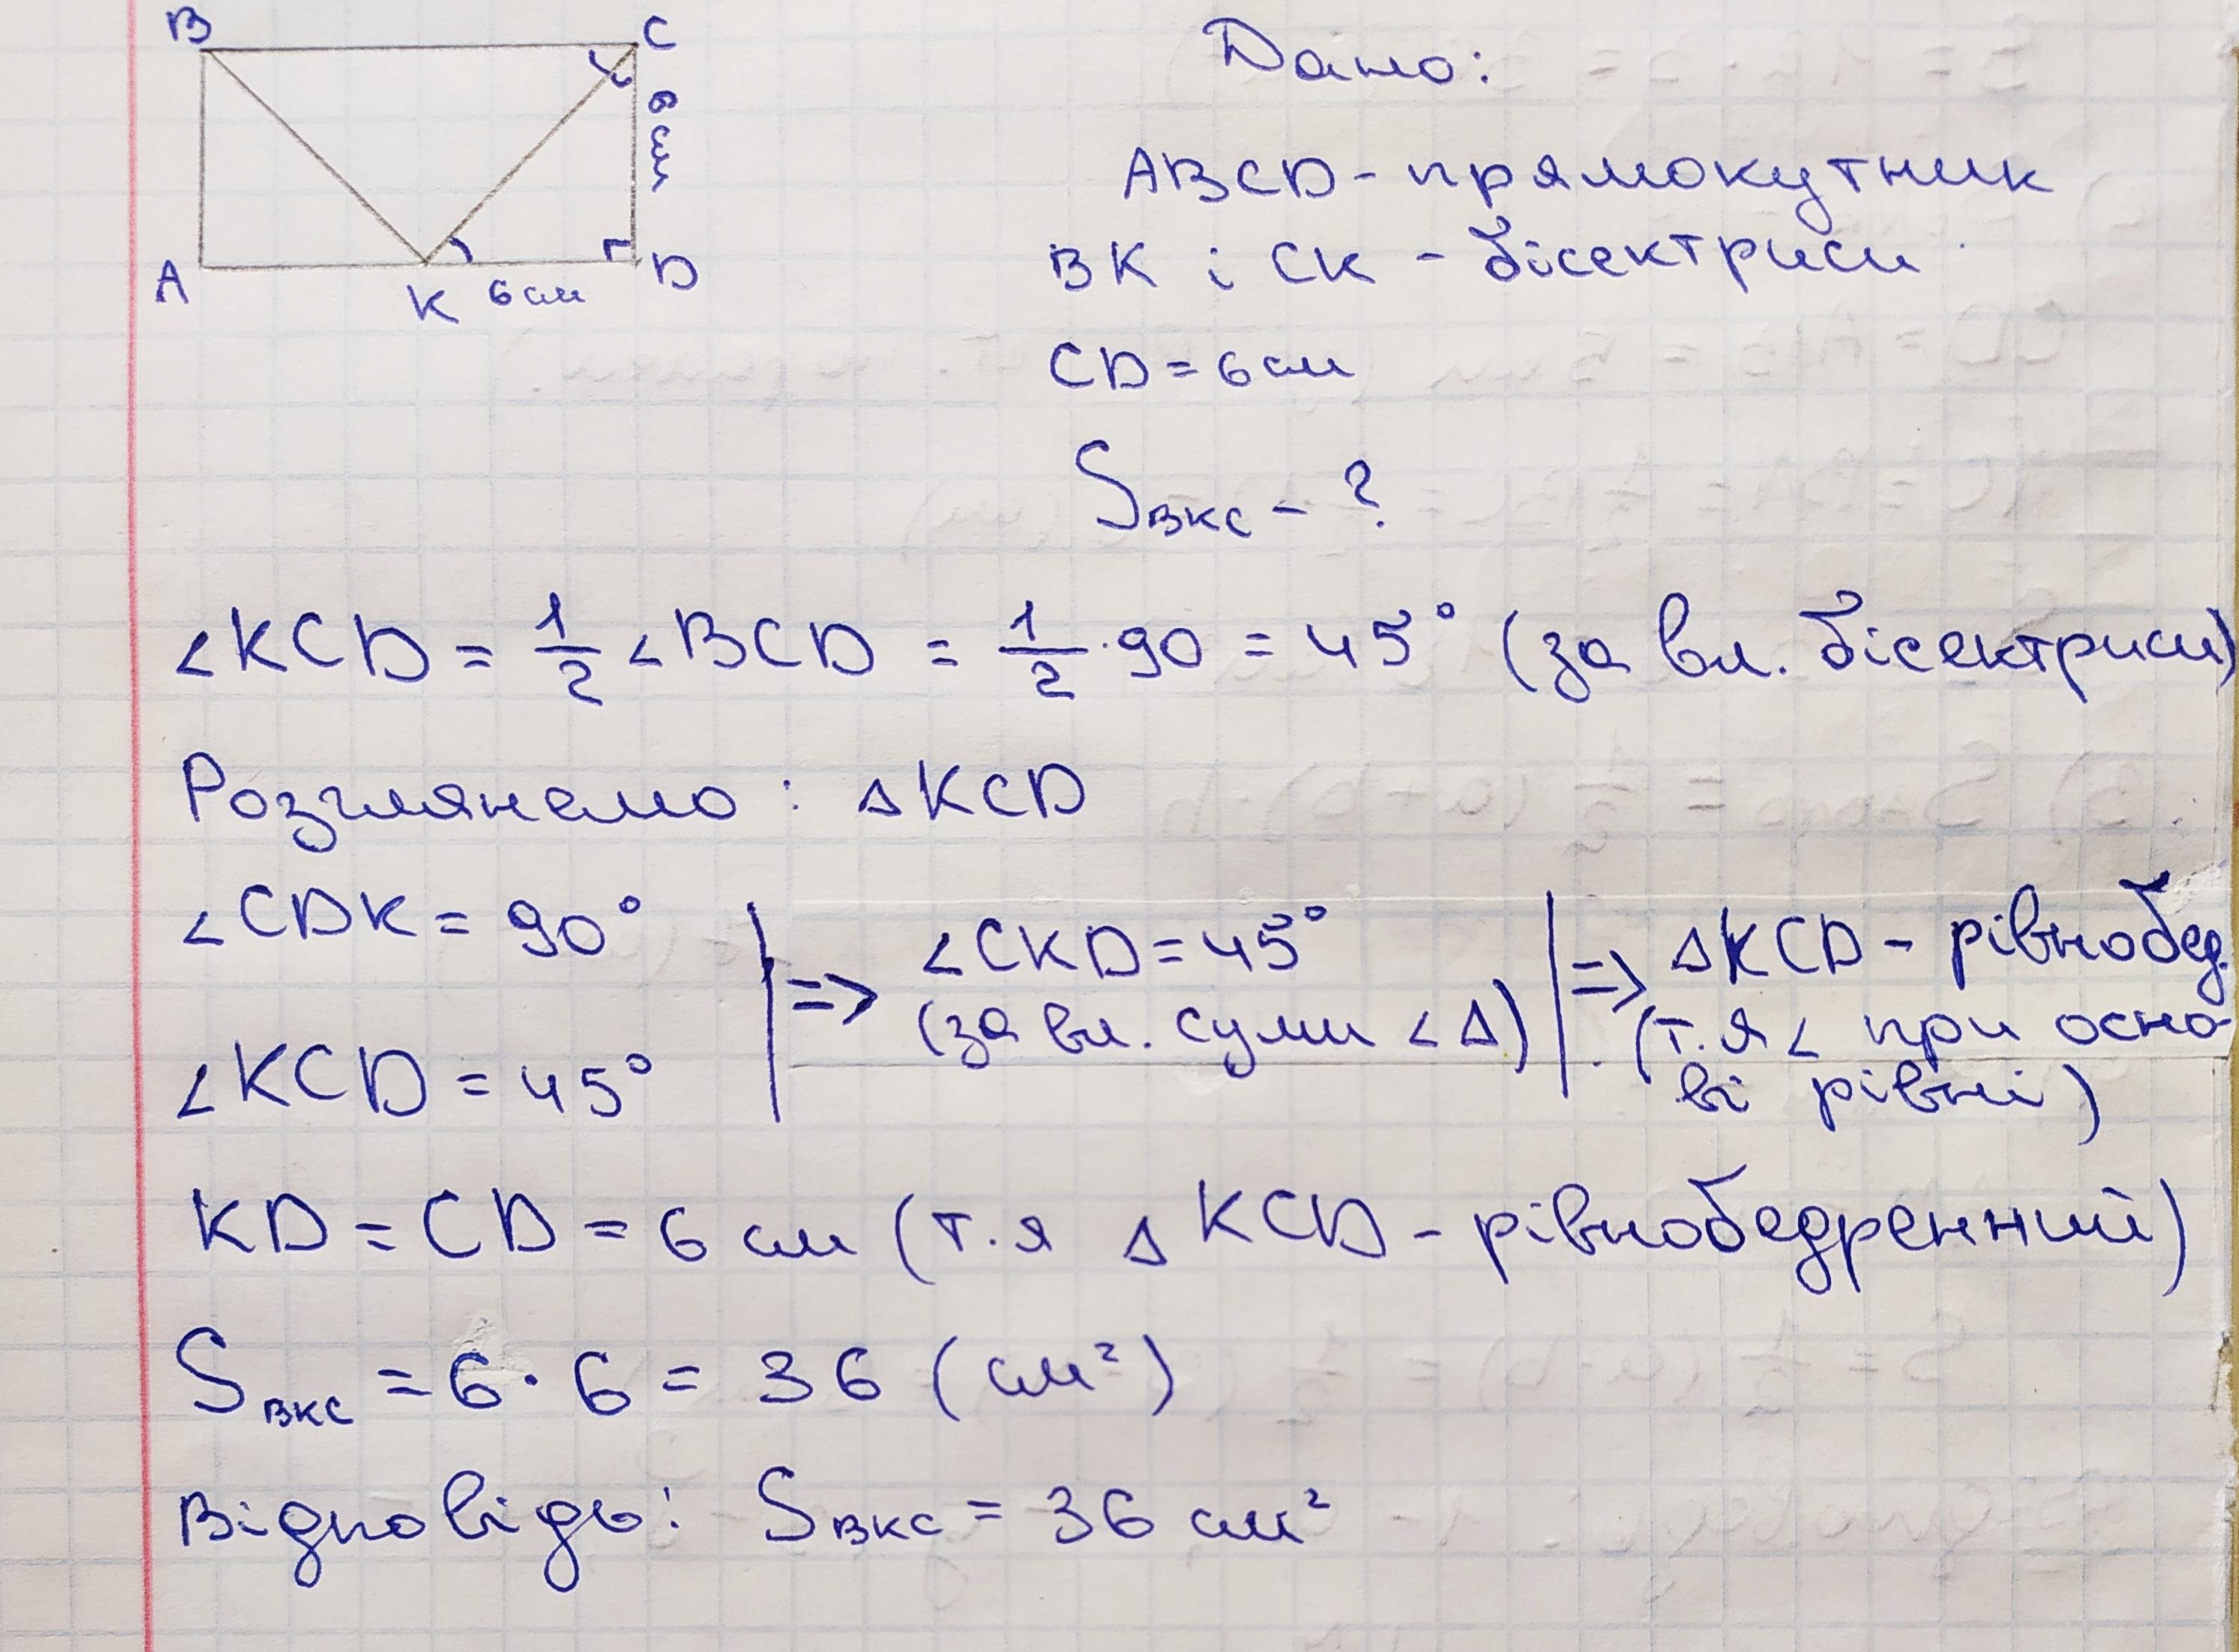 B
C
6 см
A
K
6 см
D
Дано:
ABCD - прямокутник
BK і CK - бісектриси
CD = 6 см
S BKC - ?
∠KCD = 1/2 ∠BCD = 1/2 · 90 = 45° (за вл. бісектриси)
Розглянемо : △KCD
∠CDK = 90°
∠KCD = 45°
=> ∠CKD = 45°
(за вл. суми ∠ △)
=> △KCD - рівнобед.
(т.я ∠ при осно-
ві рівні)
KD = CD = 6 см (т.я △ KCD - рівнобедренний)
S BKC = 6 · 6 = 36 (см²)
Відповідь: S BKC = 36 см²